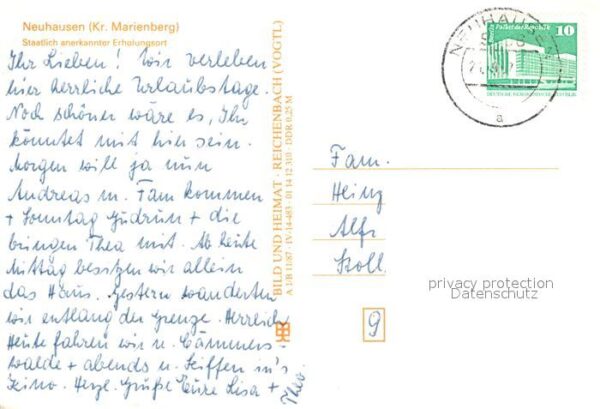 Neuhausen (Kr. Marienberg)
Staatlich anerkannter Erholungsort
Ihr Lieben! Wir verleben
hier herrliche Urlaubstage.
Noch schöner wäre es, Ihr
könntet mit hier sein.
Morgen will ja nun
Andreas m. Fam kommen
+ Sonntag Gudrun + die
bringen Thea mit. Ab heute
Mittag besitzen wir allein
das Haus. Gestern wanderten
wir entlang der Grenze. Herrlich
Heute fahren wir n. Cämmers-
walde + abends n. Seiffen in's
Kino. Herzl. Grüße Eure Lisa +
Theo.
BILD UND HEIMAT · REICHENBACH (VOGTL)
A 1/B 11/87 · IV-14-483 · 01 14 12 310 · DDR 0,25 M
NEUHAU
a
10
Palast der Republik
DEUTSCHE DEMOKRATISCHE REPUBLIK
Fam.
Heinz
Alfr
Scoll.
9
privacy protection
Datenschutz